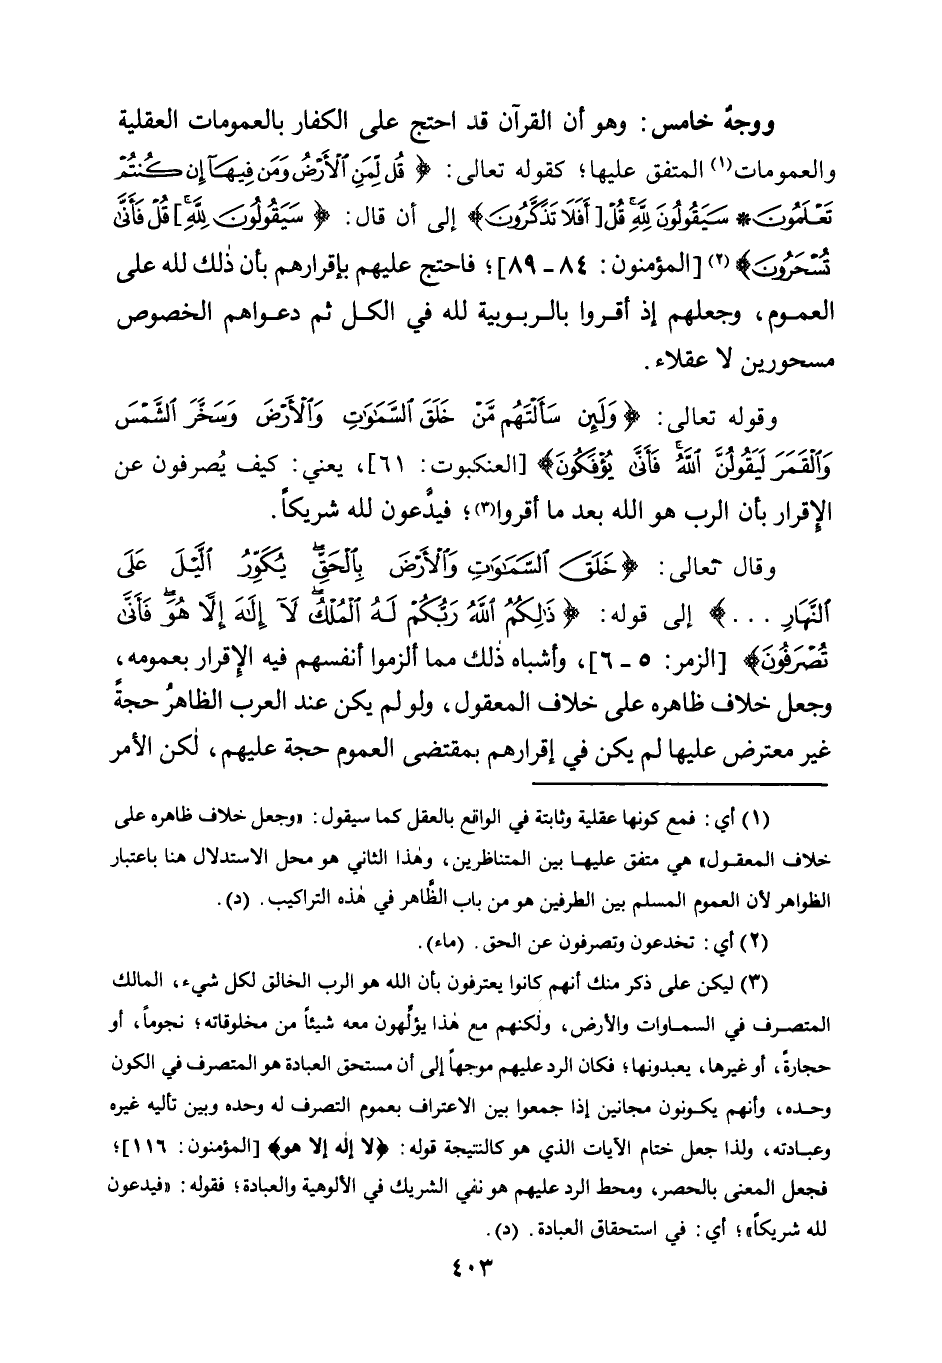 ووجهٌ خامس: وهو أن القرآن قد احتج على الكفار بالعمومات العقلية
والعمومات(١) المتفق عليها؛ كقوله تعالى: ﴿ قُل لِّمَنِ ٱلْأَرْضُ وَمَن فِيهَآ إِن كُنتُمْ
تَعْلَمُونَ * سَيَقُولُونَ لِلَّهِ ۚ قُلْ [أَفَلَا تَذَكَّرُونَ﴾ إلى أن قال: ﴿ سَيَقُولُونَ لِلَّهِ ۚ] قُلْ فَأَنَّىٰ
تُسْحَرُونَ﴾(٢) [المؤمنون: ٨٤ - ٨٩]؛ فاحتج عليهم بإقرارهم بأن ذٰلك لله على
العموم، وجعلهم إذ أقروا بالربوبية لله في الكل ثم دعواهم الخصوص
مسحورين لا عقلاء.
وقوله تعالى: ﴿ وَلَئِن سَأَلْتَهُم مَّنْ خَلَقَ ٱلسَّمَٰوَٰتِ وَٱلْأَرْضَ وَسَخَّرَ ٱلشَّمْسَ
وَٱلْقَمَرَ لَيَقُولُنَّ ٱللَّهُ ۖ فَأَنَّىٰ يُؤْفَكُونَ﴾ [العنكبوت: ٦١]، يعني: كيف يُصرفون عن
الإقرار بأن الرب هو الله بعد ما أقروا(٣)؛ فيدَّعون لله شريكاً.
وقال تعالى: ﴿ خَلَقَ ٱلسَّمَٰوَٰتِ وَٱلْأَرْضَ بِٱلْحَقِّ ۖ يُكَوِّرُ ٱلَّيْلَ عَلَى
ٱلنَّهَارِ ...﴾ إلى قوله: ﴿ ذَٰلِكُمُ ٱللَّهُ رَبُّكُمْ لَهُ ٱلْمُلْكُ ۖ لَآ إِلَٰهَ إِلَّا هُوَ ۖ فَأَنَّىٰ
تُصْرَفُونَ﴾ [الزمر: ٥ - ٦]، وأشباه ذٰلك مما ألزموا أنفسهم فيه الإقرار بعمومه،
وجعل خلاف ظاهره على خلاف المعقول، ولو لم يكن عند العرب الظاهرُ حجةً
غير معترض عليها لم يكن في إقرارهم بمقتضى العموم حجة عليهم، لٰكن الأمر
(١) أي: فمع كونها عقلية وثابتة في الواقع بالعقل كما سيقول: «وجعل خلاف ظاهره على
خلاف المعقول» هي متفق عليها بين المتناظرين، وهٰذا الثاني هو محل الاستدلال هنا باعتبار
الظواهر لأن العموم المسلم بين الطرفين هو من باب الظَّاهر في هٰذه التراكيب. (د).
(٢) أي: تخدعون وتصرفون عن الحق. (ماء).
(٣) ليكن على ذكر منك أنهم كانوا يعترفون بأن الله هو الرب الخالق لكل شيء، المالك
المتصرف في السماوات والأرض، ولٰكنهم مع هٰذا يؤلِّهون معه شيئاً من مخلوقاته؛ نجوماً، أو
حجارةً، أو غيرها، يعبدونها؛ فكان الرد عليهم موجهاً إلى أن مستحق العبادة هو المتصرف في الكون
وحده، وأنهم يكونون مجانين إذا جمعوا بين الاعتراف بعموم التصرف له وحده وبين تأليه غيره
وعبادته، ولذا جعل ختام الآيات الذي هو كالنتيجة قوله: ﴿لا إلٰه إلا هو﴾ [المؤمنون: ١١٦]؛
فجعل المعنى بالحصر، ومحط الرد عليهم هو نفي الشريك في الألوهية والعبادة؛ فقوله: «فيدعون
لله شريكاً»؛ أي: في استحقاق العبادة. (د).
٤٠٣